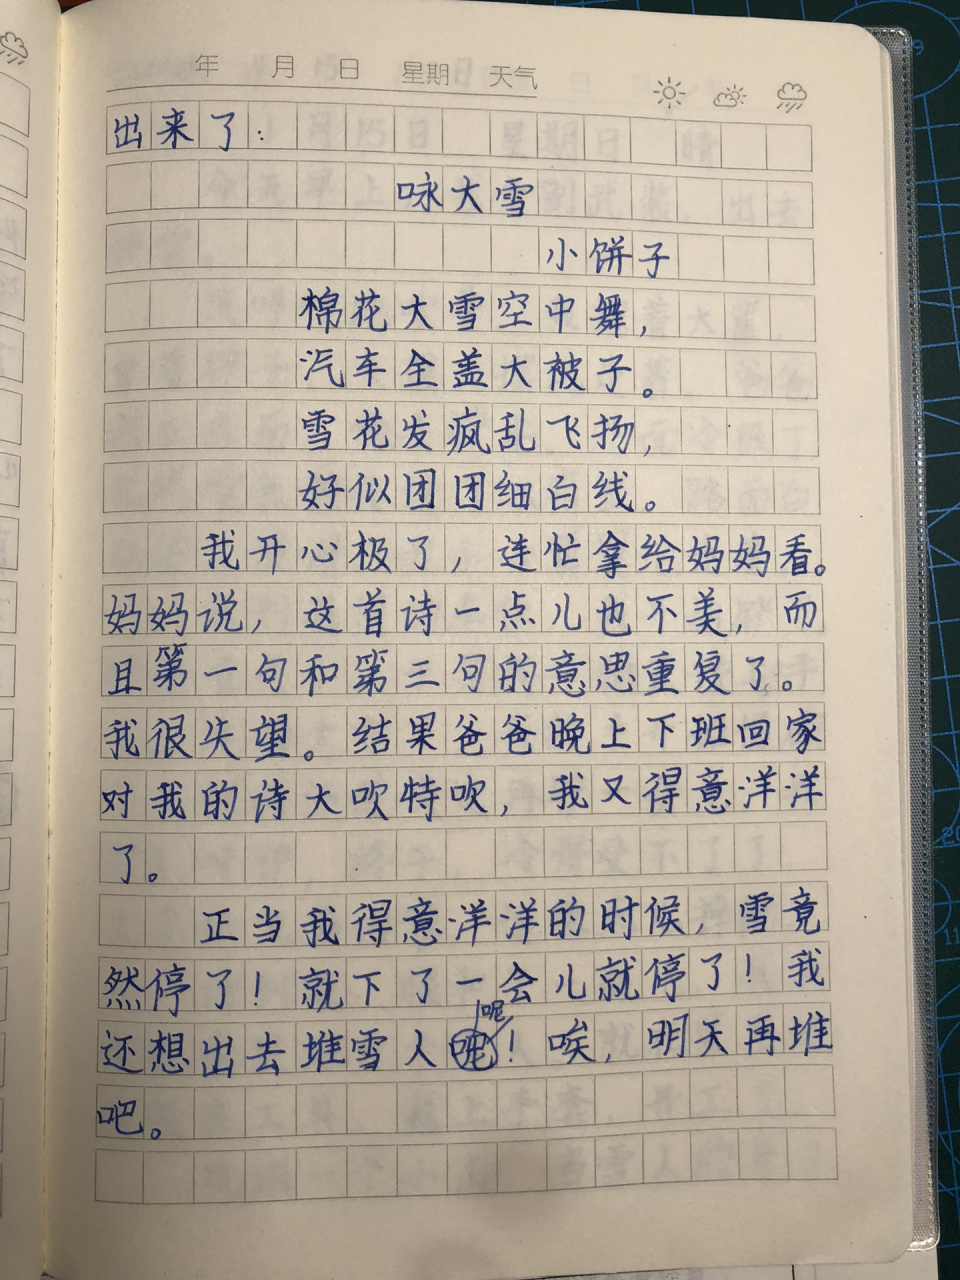 年 月 日 星期 天气
出来了：
咏大雪
小饼子
棉花大雪空中舞，
汽车全盖大被子。
雪花发疯乱飞扬，
好似团团细白线。
我开心极了，连忙拿给妈妈看。
妈妈说，这首诗一点儿也不美，而
且第一句和第三句的意思重复了。
我很失望。结果爸爸晚上下班回家
对我的诗大吹特吹，我又得意洋洋
了。
正当我得意洋洋的时候，雪竟
然停了！就下了一会儿就停了！我
还想出去堆雪人呢！唉，明天再堆
吧。